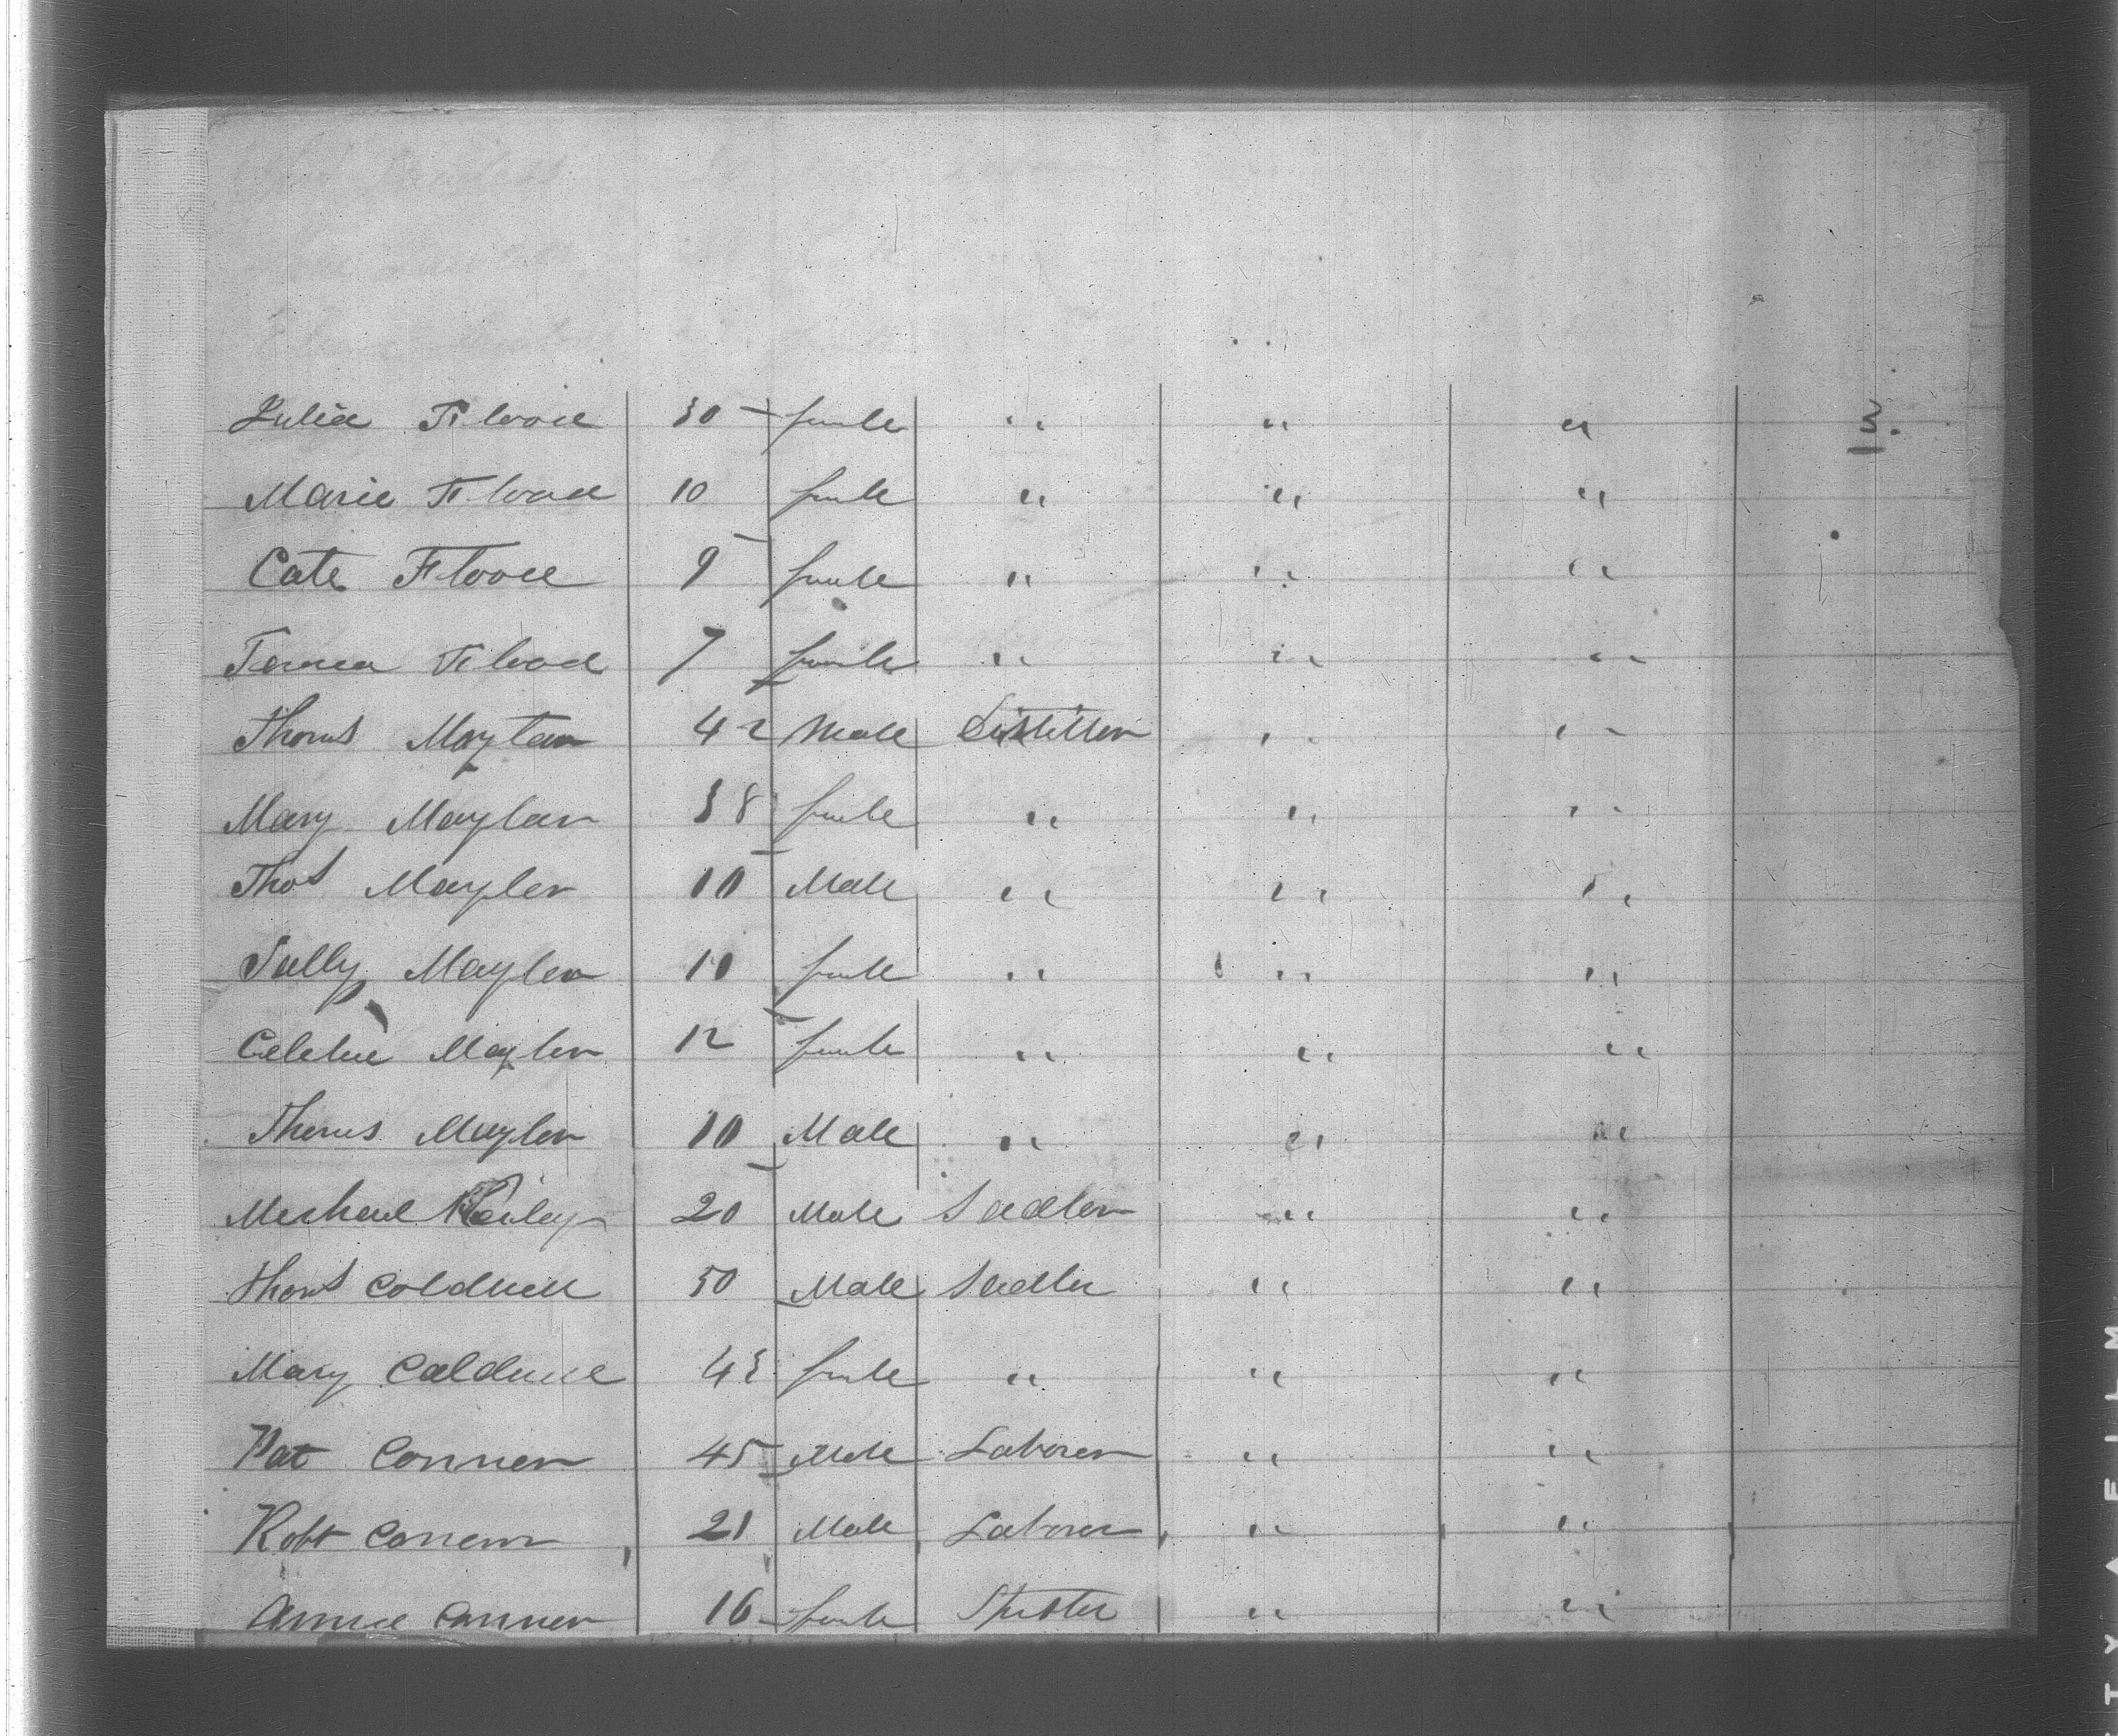 3.
Julia Flood 30 – female " " "
Marie Flood 10 female " " "
Cate Flood 9 female " " "
Flood 7 female " " "
Thoms Maylan 42 Male Distiller " "
Mary Maylan 38 female " " "
Thos Mayler 10 Male " " "
Sally Mayler 10 female " " "
Mayler 12 female " " "
Thoms Mayler 10 Male " " "
Michael 20 Male Sadler " "
Thoms Coldwell 50 Male Sadler " "
Mary Caldwell 43 female " " "
Pat Conner 45 Male Laborer " "
Robt Conner 21 Male Laborer " "
Annie Conner 16 female " "
M
F I L M
I T Y A